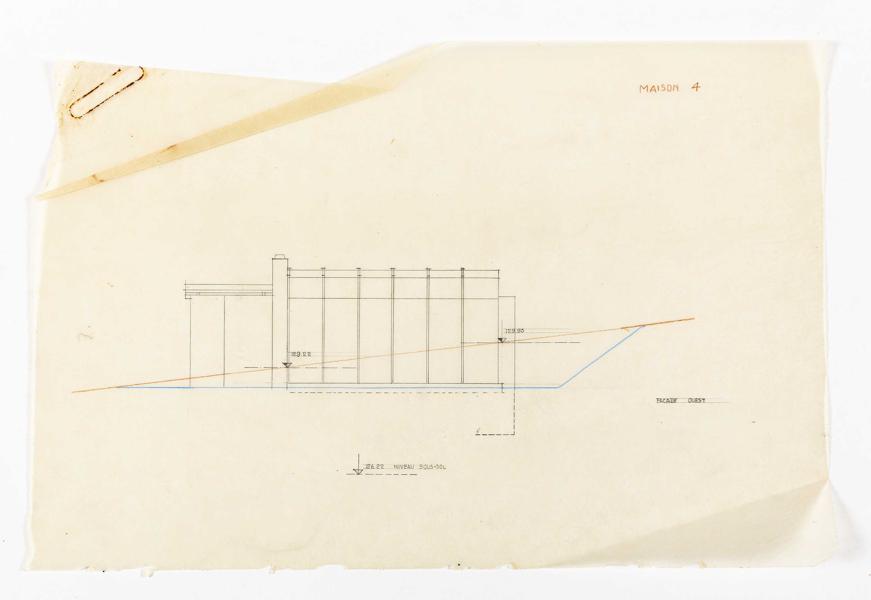 MAISON 4
129.93
129.22
FACADE OUEST
126.22 NIVEAU SOUS-SOL